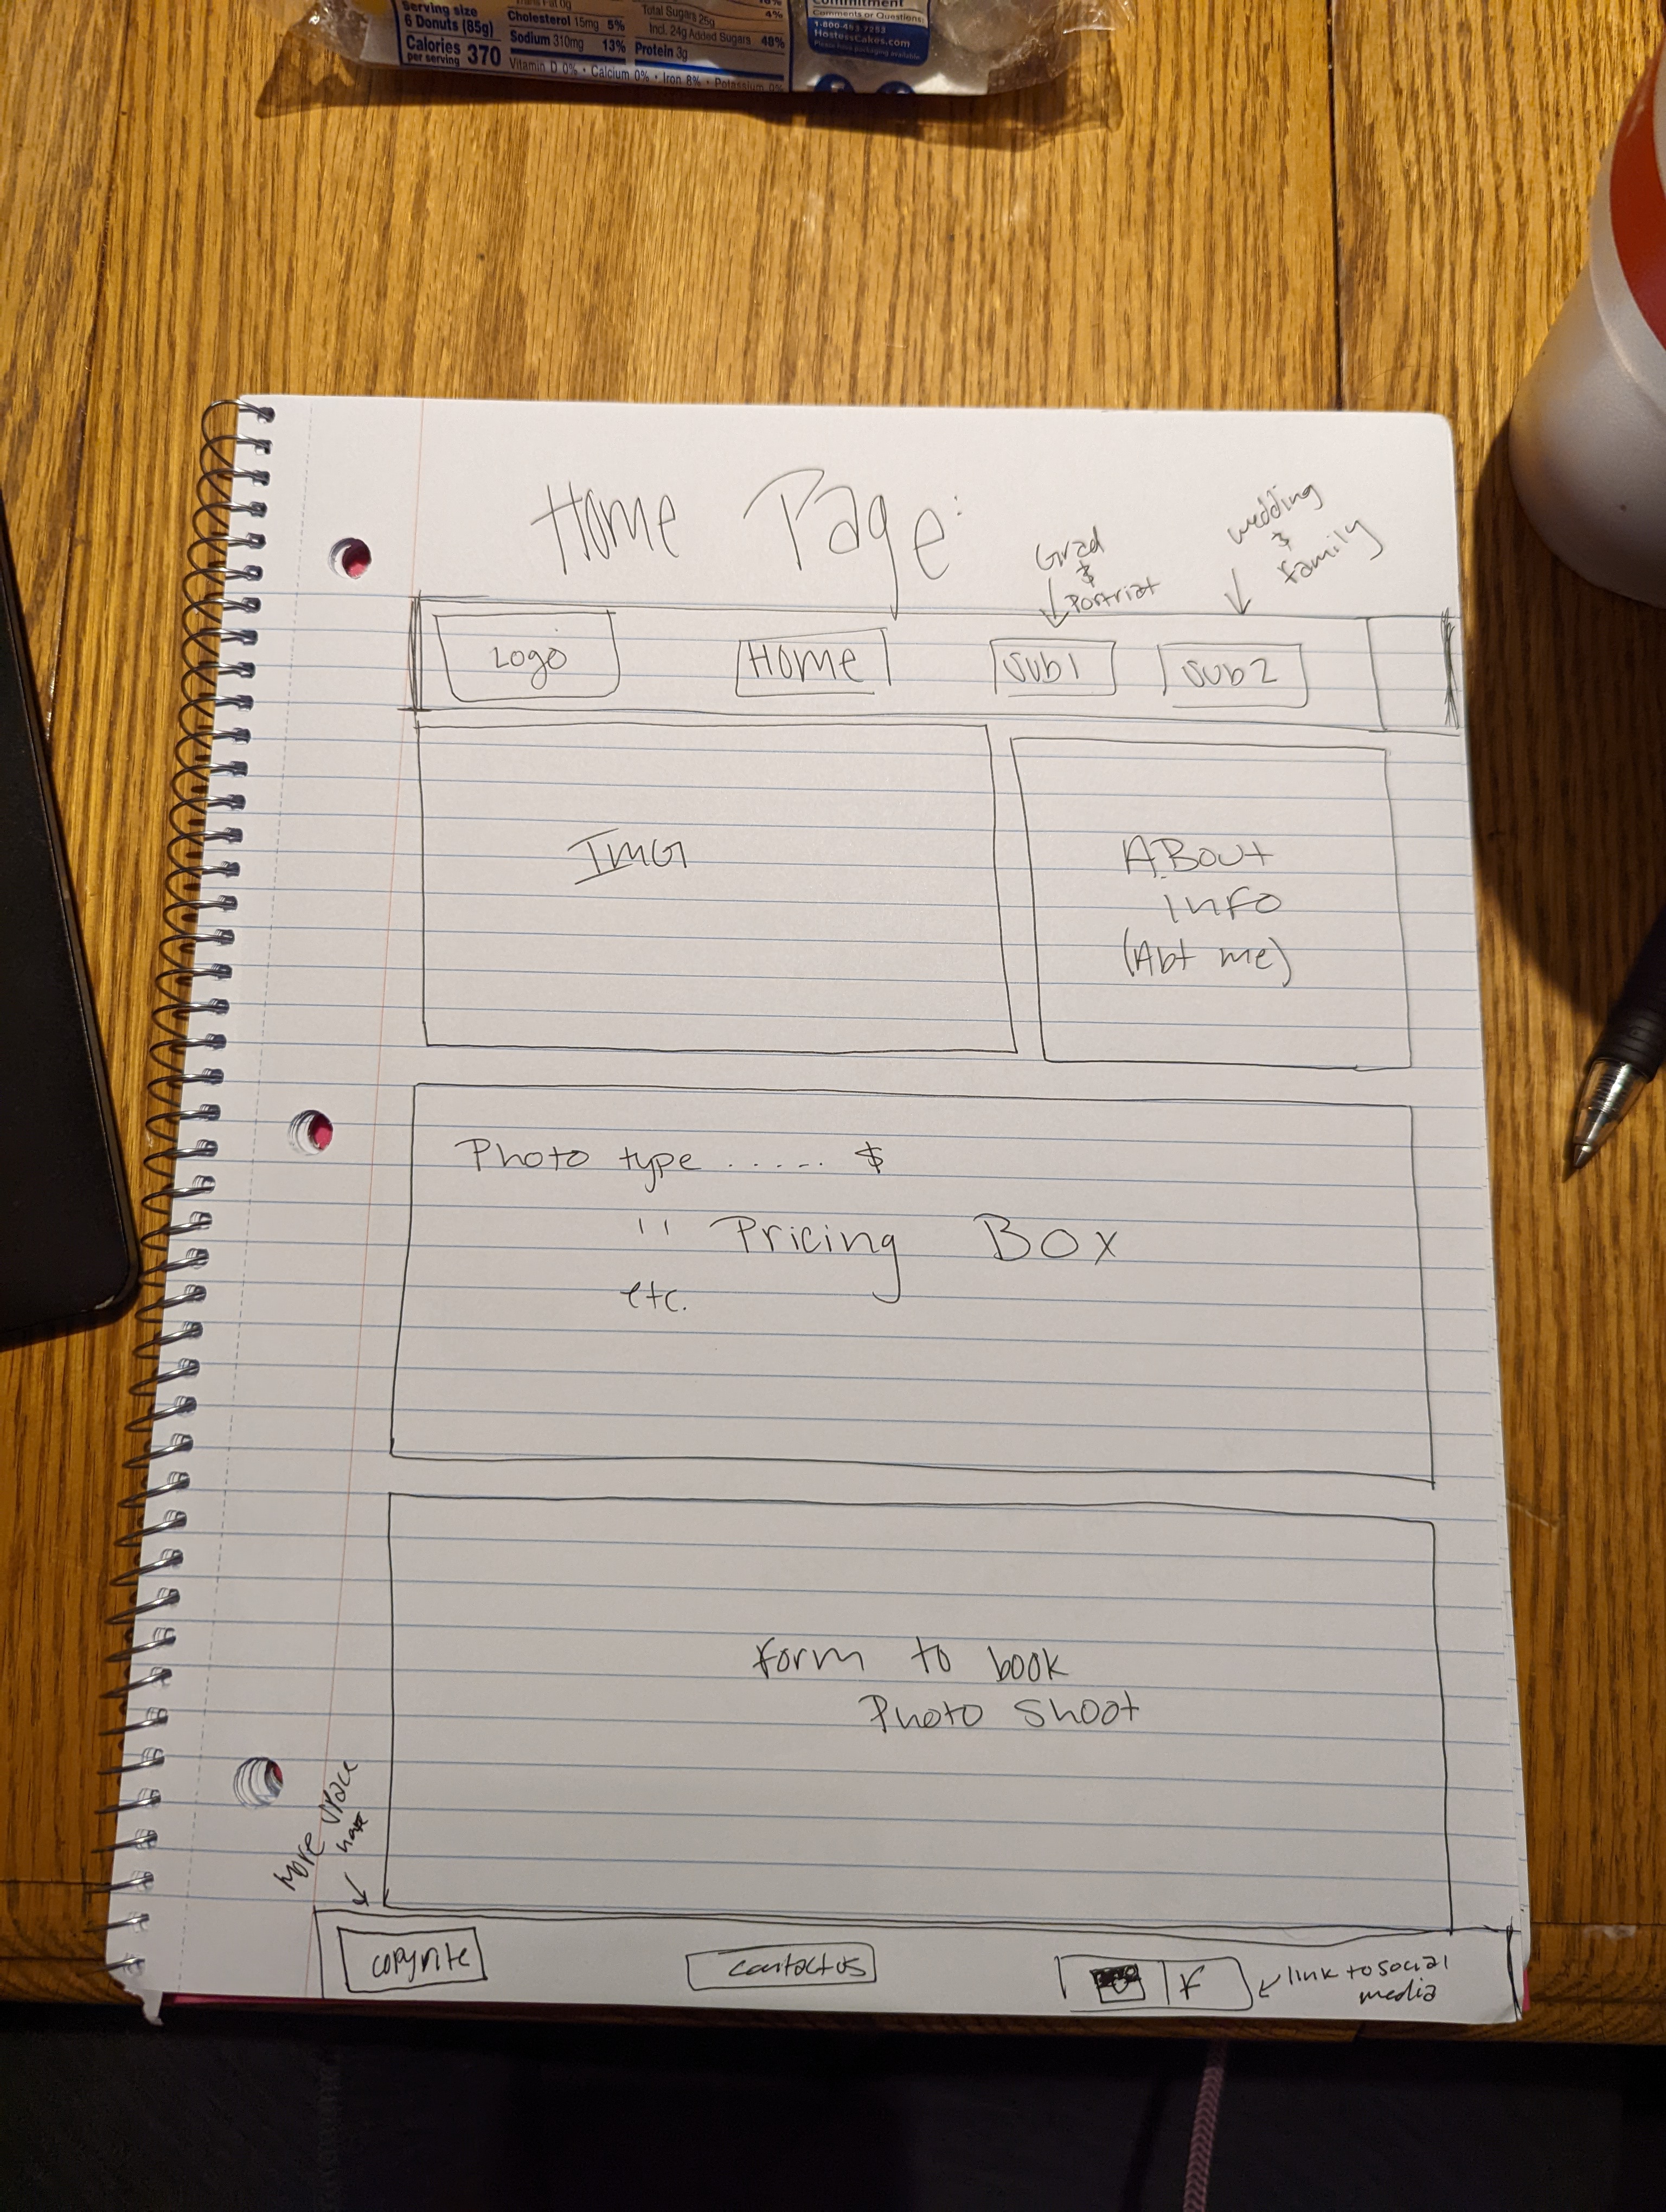 Serving size
6 Donuts (85g)
Calories
per serving 370
Cholesterol 15mg 5%
Sodium 310mg 13%
Vitamin D 0% • Calcium 0% • Iron 8% • Potassium 0%
Total Sugars 25g
Incl. 24g Added Sugars 48%
Protein 3g
4%
Commitment
Comments or Questions
1-800-483-7253
HostessCakes.com
Home Page:
Grad
&
Portriat
wedding
&
family
Logo
Home
Sub1
Sub2
IMG
About
info
(Abt me)
Photo type ..... $
" Pricing Box
etc.
form to book
Photo Shoot
More space
here
copyrite
contact us
f
link to social
media